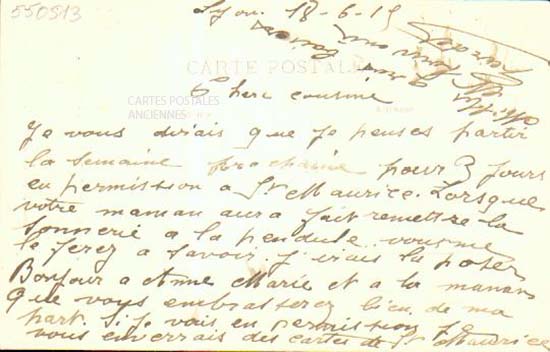 550813
Lyon 18-6-19
CARTE POSTALE
Chere cousine
CARTES POSTALES
ANCIENNES
Je vous dirais que je penses partir
la semaine prochaine pour 3 jours
en permission a St Maurice. Lorsque
votre maman aura fait remettre la
sonnerie a la pendule vous me
le ferez a savoir. j'irais la poser
Bonjour a Anne Marie et a la maman
que vous embrasserez bien de ma
part. Si je vais en permission je
vous enverrais des cartes de St Maurice